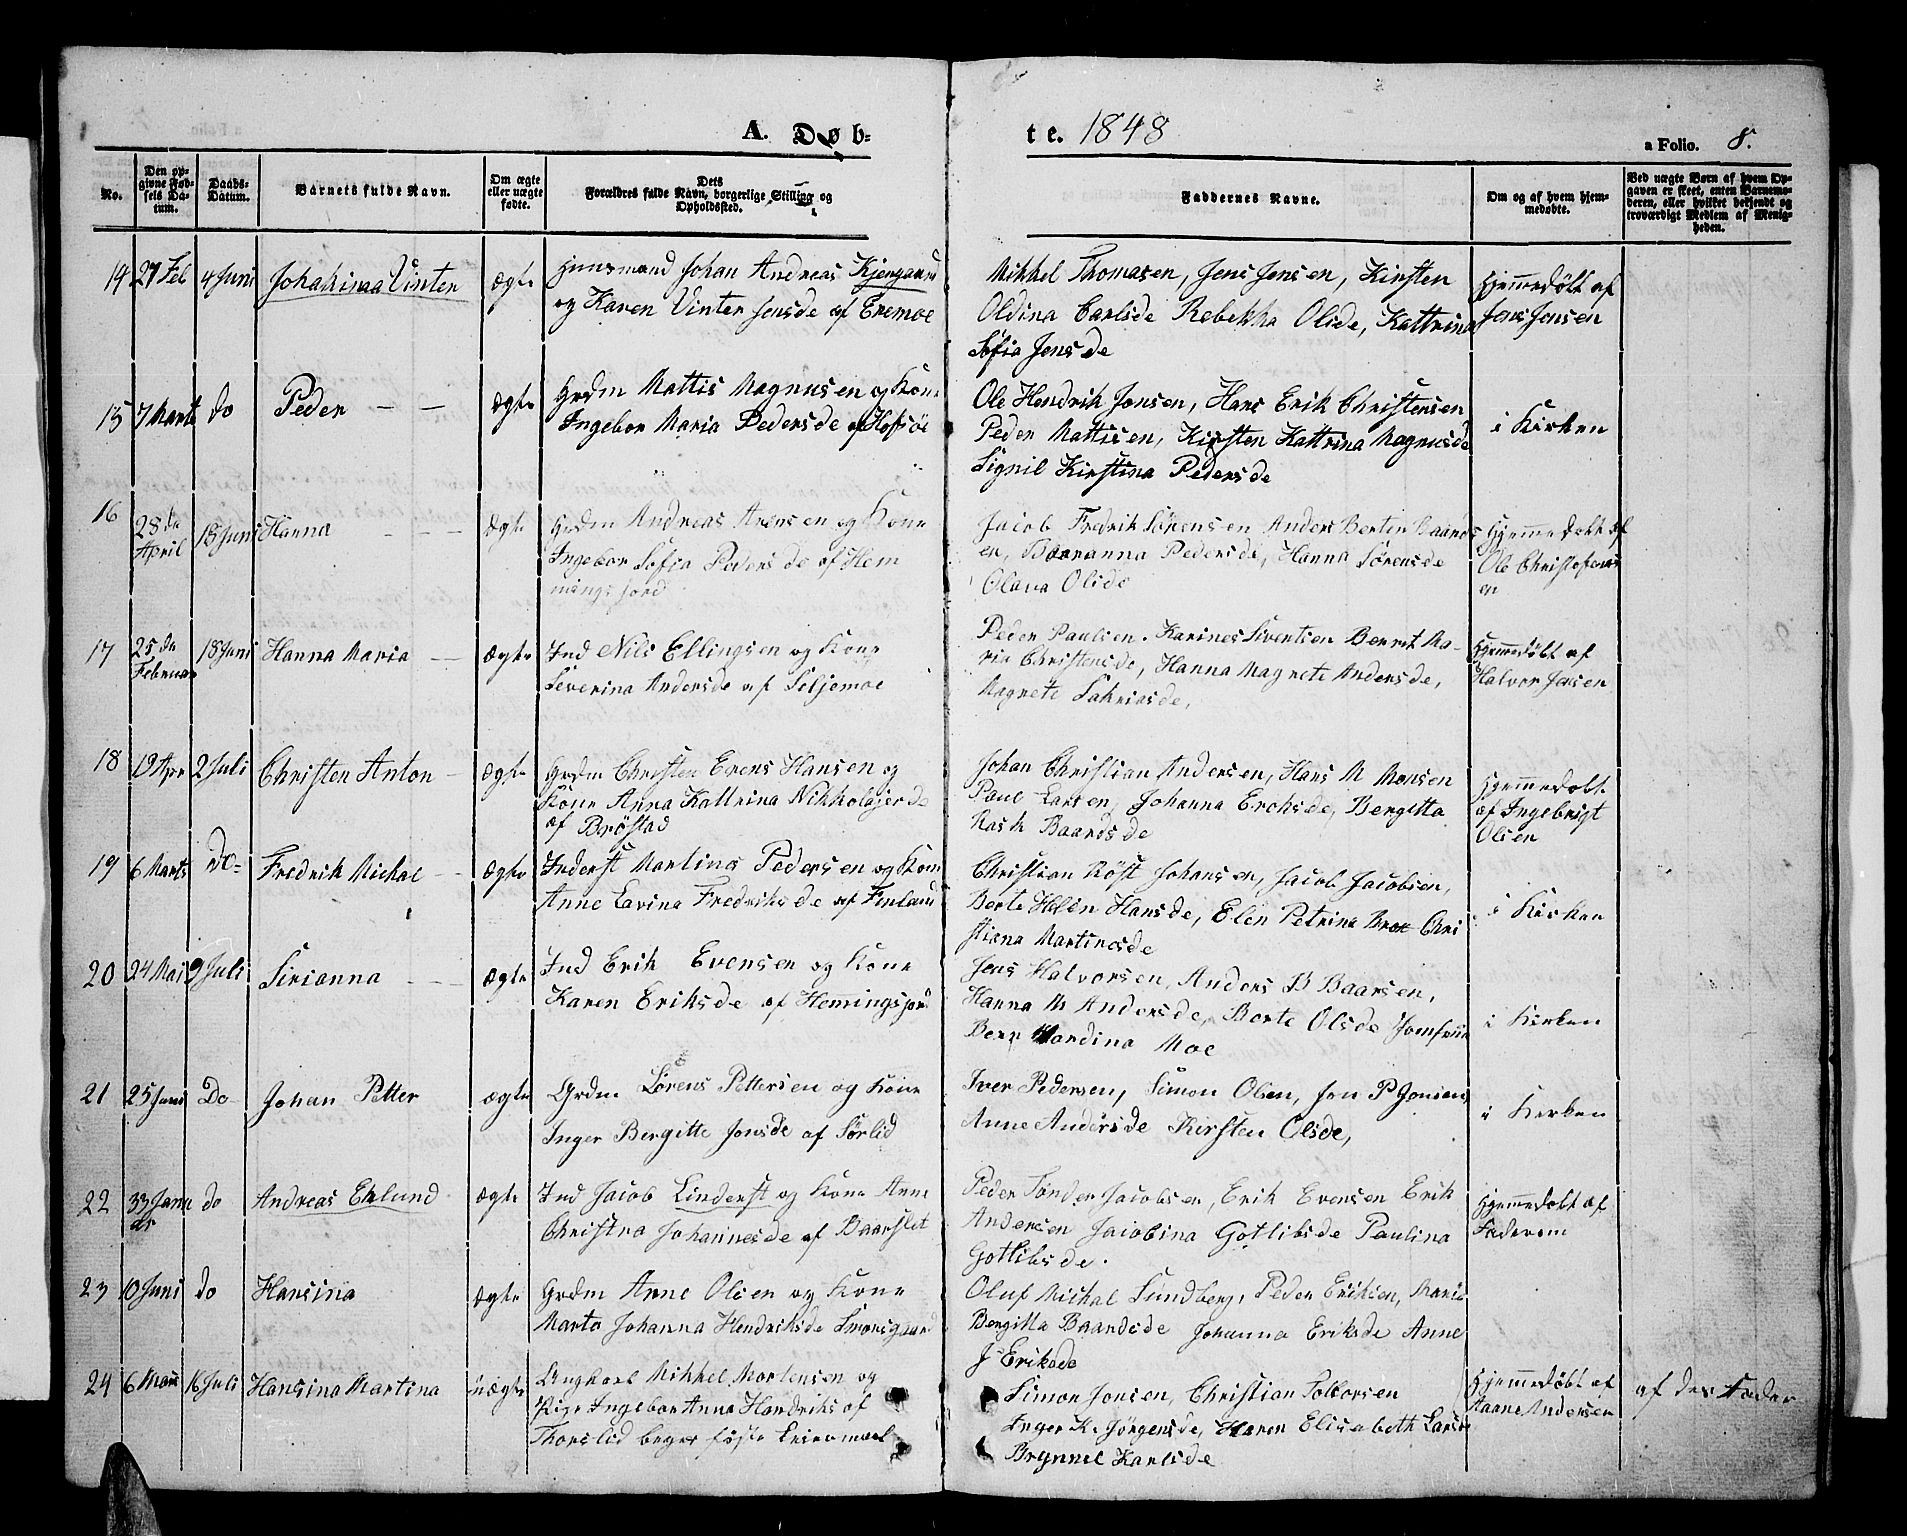 A. Døb-
te. 1848
a Folio. 8.
No.
Den op-
givne Fød-
sels Da-
tum.
Daabs-
Datum.
Barnets fulde Navn.
Om ægte
eller uægte
fødte.
Dets
Forældres fulde Navn, borgerlige Stilling og
Opholdssted.
Faddernes Navne.
Om og af hvem hjem-
medøbte.
Ved uægte Børn af hvem Op-
gaven er skeet, enten Barnemo-
deren, eller hvilket bekjendt og
troværdigt Medlem af Menig-
heden.
14 27 Feb 4 Juni Johakima Vinter ægte Huusmand Johan Andreas
og Karen Vinter Jensde af Eremoe
Mikkel Thomasen, Jens Jensen, Kirsten
Oldina Carlsde Rebekka Olsde, Kattrina
Sofia Jensde
Hjemmedøbt af
Jens Jensen
15 7 Marts do Peder — — ægte Grdm Mattis Magnusen og Kone
Ingebor Maria Pedersde af Hofsöe
Ole Hendrik Jonsen, Hans Erik Christensen
Peder Mattisen, Kirsten Kattrina Magnusde
Signil Kirstina Pedersde
i Kirken
16 28 da
April 18 Juni Hanna — — ægte Grdm Andreas Arensen og Kone
Ingebor Sofia Pedersde af Hem
mingsjord
Jacob Fredrik Sörensen Anders Bertin Baards
en, Baaranna Pedersde, Hanna Sörensde
Olava Olsde
Hjemmedøbt af
Ole Christofers
en
17 25 da
Februar 18 Juni Hanna Maria — ægte Ind Nils Ellingsen og Kone
Severina Andersde af Seljemoe
Peder Paulsen. Karines Siventsen Berret Ma-
ria Christensde, Hanna Magnete Andersde,
Magnete Sakriasde,
Hjemmedøbt af
Halvor Jensen
18 19 Apr 2 Juli Christen Anton — ægte Grdm Christen Erens Hansen og
Kone Anna Kattrina Nikkolajsde
af Bröstad
Johan Christian Andersen, Hans M Monsen
Paul Larsen, Johanna Eroksde, Bergitta
Rask Baardsde
Hjemmedøbt
af Ingebrigt
Olsen
19 6 Marts Do- Fredrik Mickal — ægte Inderst Martinus Pedersen og Kone
Anne Lavina Fredriksde af Finland
Christian Röst Johansen, Jacob Jacobsen,
Berte Helen Hansde, Elen Petrina Chri
stiana Martinusde
i Kirken
20 24 Mai 9 Juli Sirianna — — ægte Ind Erik Evensen og Kone
Karen Eriksde af Hemingsjord
Jens Halvorsen, Anders B Baarsen,
Hanna M Andersde, Berte Olsde Jomfrue
Bernhardina Moe
i Kirken
21 25 Juni Do Johan Petter ægte Grdm Sörens Pettersen og Kone
Inger Bergitte Jonsde af Sörlid
Iver Pedersen, Simon Olsen, Jon P Jonsen,
Anne Andersde Kirsten Olsde,
i Kirken
22 33 Janu
ar do Andreas Eklund ægte Ind Jacob Linderst og Kone Anne
Christna Johannesde af Baarslet
Peder Tönder Jacobsen, Erik Evensen Erik
Andersen Jacobina Gotlibsde Paulina
Gotlibsde.
Hjemmedøbt af
Faderen
23 10 Juni do Hansina ægte Grdm Arne Olsen og Kone
Marta Johanna Hendriksde Smorsgaard
Oluf Mickal Sundberg, Peder Eriksen, Maria
Bergitta Baardsde Johanna Eriksde Anne
J Eriksde
24 6 16 Juli Hansina Martina uægte Ungkarl Mikkel Mortensen og
Pige Ingebor Anna Hendriks af
Thorslid begges föste Leiermaal
Simon Jonsen, Christian Tolborsen
Inger K. Jörgensde, Maren Elisabeth Larsde
Brynnel Karlsde
Hjemmedøbt af
Aaane Andersen
af des Fader